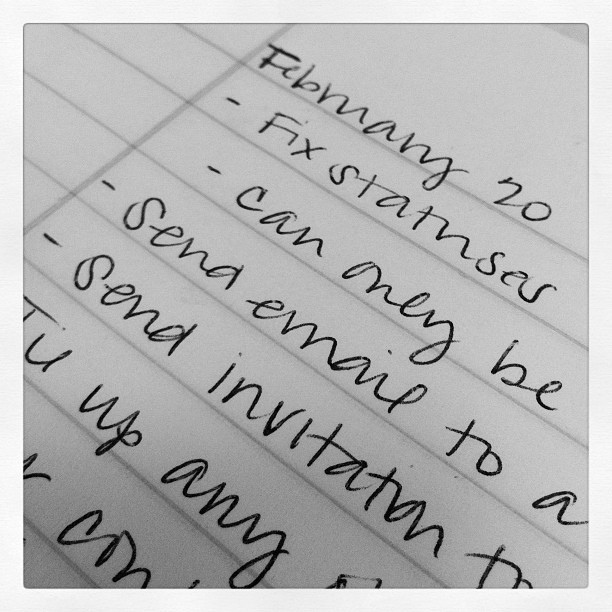 February 20
- Fix statuses
- can only be
- Send email to a
- Send invitation to
Tie up any
con